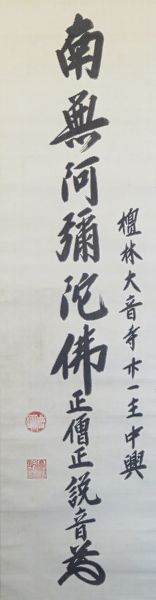 檀林大音寺廿一主中興
南無阿彌陀佛正僧正説音